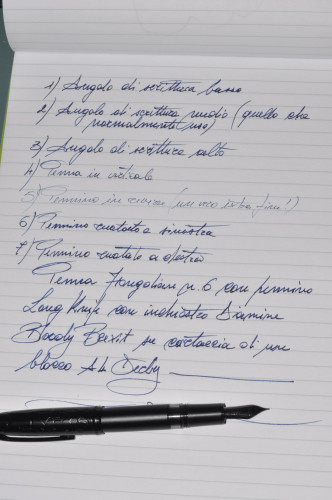 1) Angolo di scrittura basso
2) Angolo di scrittura medio (quello che
normalmente uso)
3) Angolo di scrittura alto
4) Penna in verticale
5) Pennino in rovescio (un vero extra fine!)
6) Pennino ruotato a sinistra
7) Pennino ruotato a destra
Penna n. 6 con pennino
Long Knife con inchiostro Diamine
Bloody Brexit su cartaccia di un
blocco